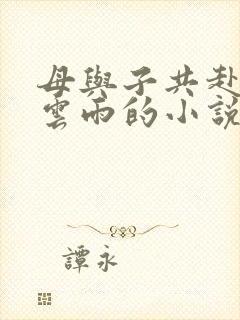 母與子共赴
雲雨的小說
譚永